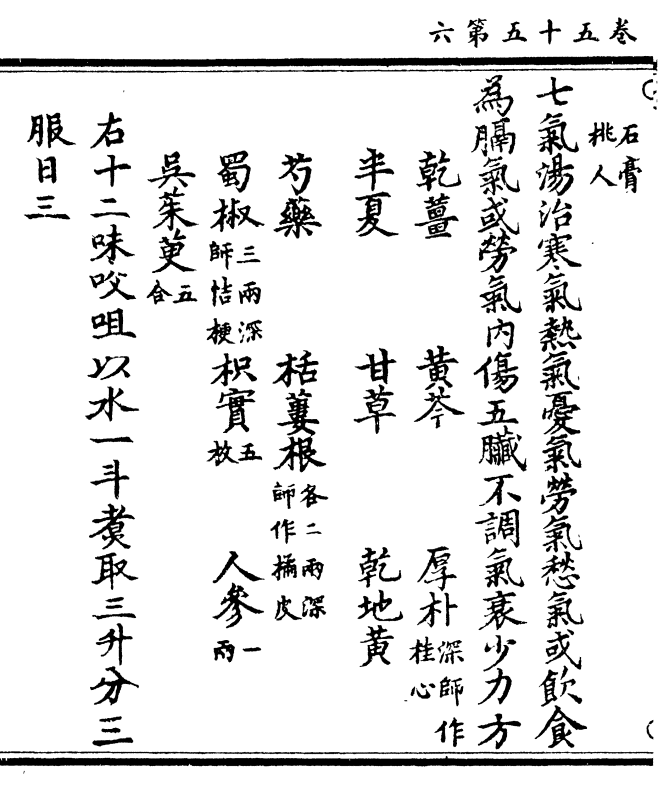 卷五十五第六
石膏
桃人
七氣湯治寒氣熱氣憂氣勞氣愁氣或飲食
為膈氣或勞氣內傷五臟不調氣衰少力方
乾薑 黃芩 厚朴深師作桂心
半夏 甘草 乾地黃
芍藥 栝蔞根各二兩深師作橘皮
蜀椒三兩深師桔梗 枳實五枚 人參一兩
吳茱萸五合
右十二味㕮咀以水一斗煑取三升分三
服日三